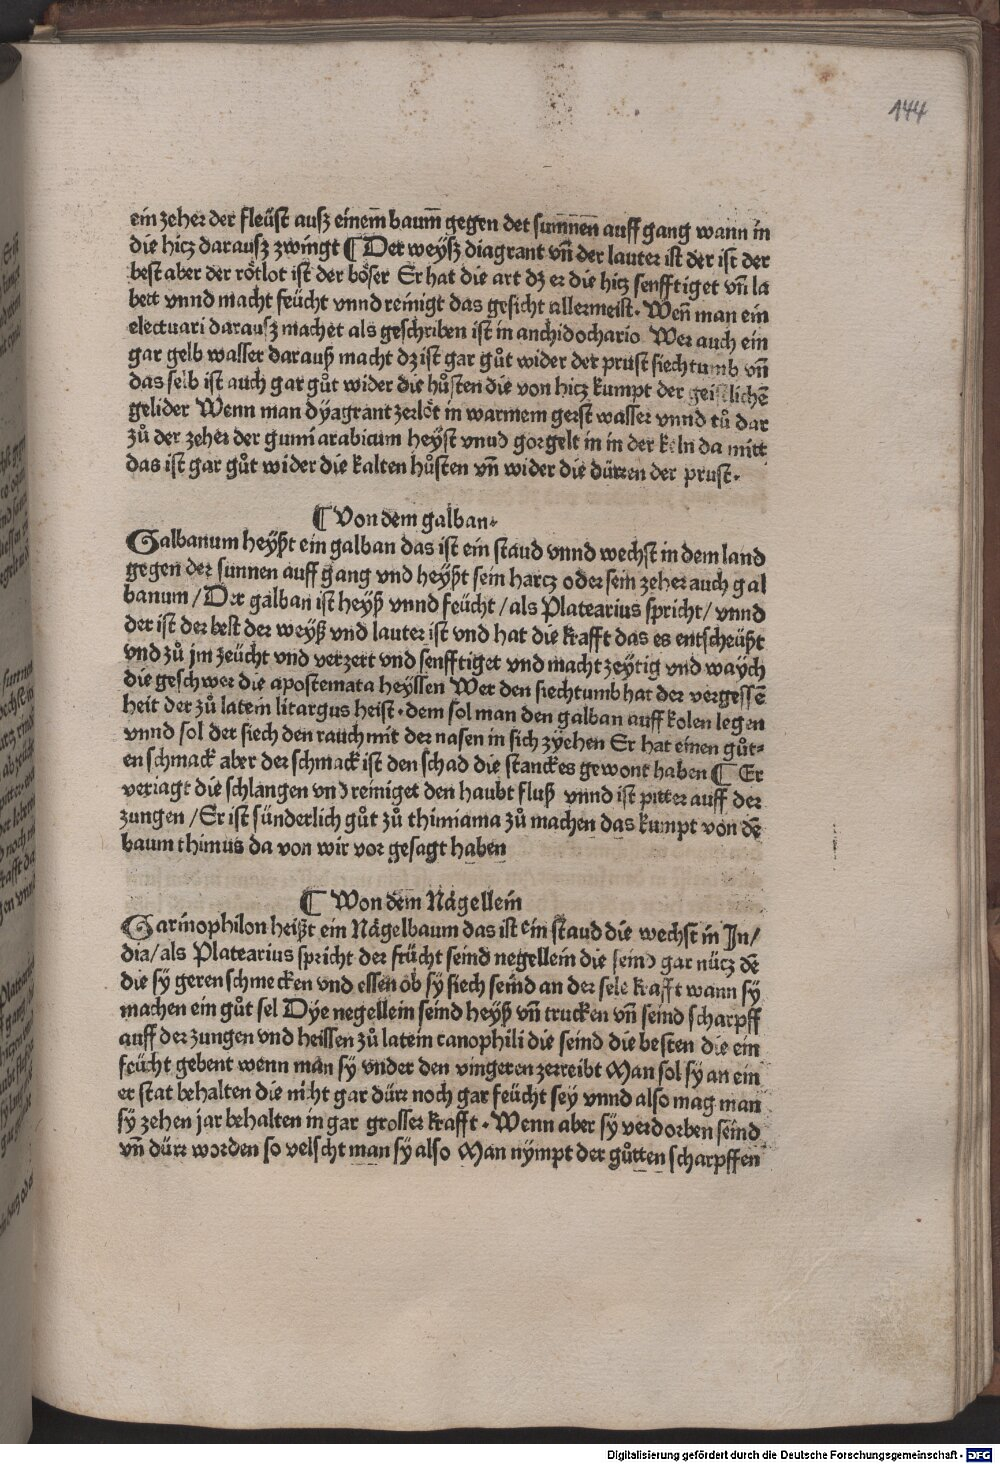 144
ein zeher der fleüst ausz einem̄ baum̄ gegen det sum̄nen̄ auff gang wann in
die hicz darausz zwingt ¶ Der weysz diagrant vn̄ der lauter ist der ist der
best aber der rötlot ist der böser Er hat die art dz er die hitz senfftiget vn̄ la
bett vnnd macht feücht vnnd reinigt das gesicht allermeist. Wen̄ man ein
electuari darausz machet als geschriben ist in anchidochario Wer auch ein
gar gelb wasser darauß macht dz ist gar gůt wider der prust siechtumb vn̄
das selb ist auch gar gůt wider die hůsten die von hicz kumpt der geistlichē
gelider Wenn man dyagrant zerlöt in warmem gerst wasser vnnd tů dar
zů der zeher der gumi arabicum heyst vnnd gorgelt in in der keln da mitt
das ist gar gůt wider die kalten hůsten vn̄ wider die dürren der prust.
¶ Von dem galban.
Galbanum heyßt ein galban das ist ein staud vnnd wechst in dem land
gegen der sunnen auff gang vnd heyßt sein harcz oder sein zeher auch gal
banum / Der galban ist heyß vnnd feücht / als Platearius spricht / vnnd
der ist der best der weyß vnd lauter ist vnd hat die krafft das es entscheüßt
vnd zů jm zeücht vnd verzert vnd senfftiget vnd macht zeytig vnd waych
die geschwer die apostemata heyssen Wer den siechtumb hat der vergessē
heit der zů latein litargus heist. dem sol man den galban auff kolen legen
vnnd sol der siech den rauch mit der nasen in sich zyehen Er hat einen gůt=
en schmack aber der schmack ist den schad die stanckes gewont haben ¶ Er
veriagt die schlangen vnd reiniget den haubt fluß vnnd ist pitter auff der
zungen / Er ist sünderlich gůt zů thimiama zů machen das kumpt von dē
baum thimus da von wir vor gesagt haben
¶ Won dem Nägellein
Garinophilon heißt ein Nägelbaum das ist ein staud die wechst in In/
dia / als Platearius spricht der frücht seind negellein die seind gar nücz dē
die sy geren schmecken vnd essen ob sy siech seind an der sele krafft wann sy
machen ein gůt sel Dye negellein seind heyß vn̄ trucken vn̄ seind scharpff
auff der zungen vnd heissen zů latein canophili die seind die besten die ein
feücht gebent wenn man sy vnder den vingeren zerreibt Man sol sy an ein
er stat behalten die nicht gar dürr noch gar feücht sey vnnd also mag man
sy zehen jar behalten in gar grosser krafft. Wenn aber sy verdorben seind
vn̄ dürr worden so velscht man sy also Man nympt der gůtten scharpffen
Digitalisierung gefördert durch die Deutsche Forschungsgemeinschaft - DFG